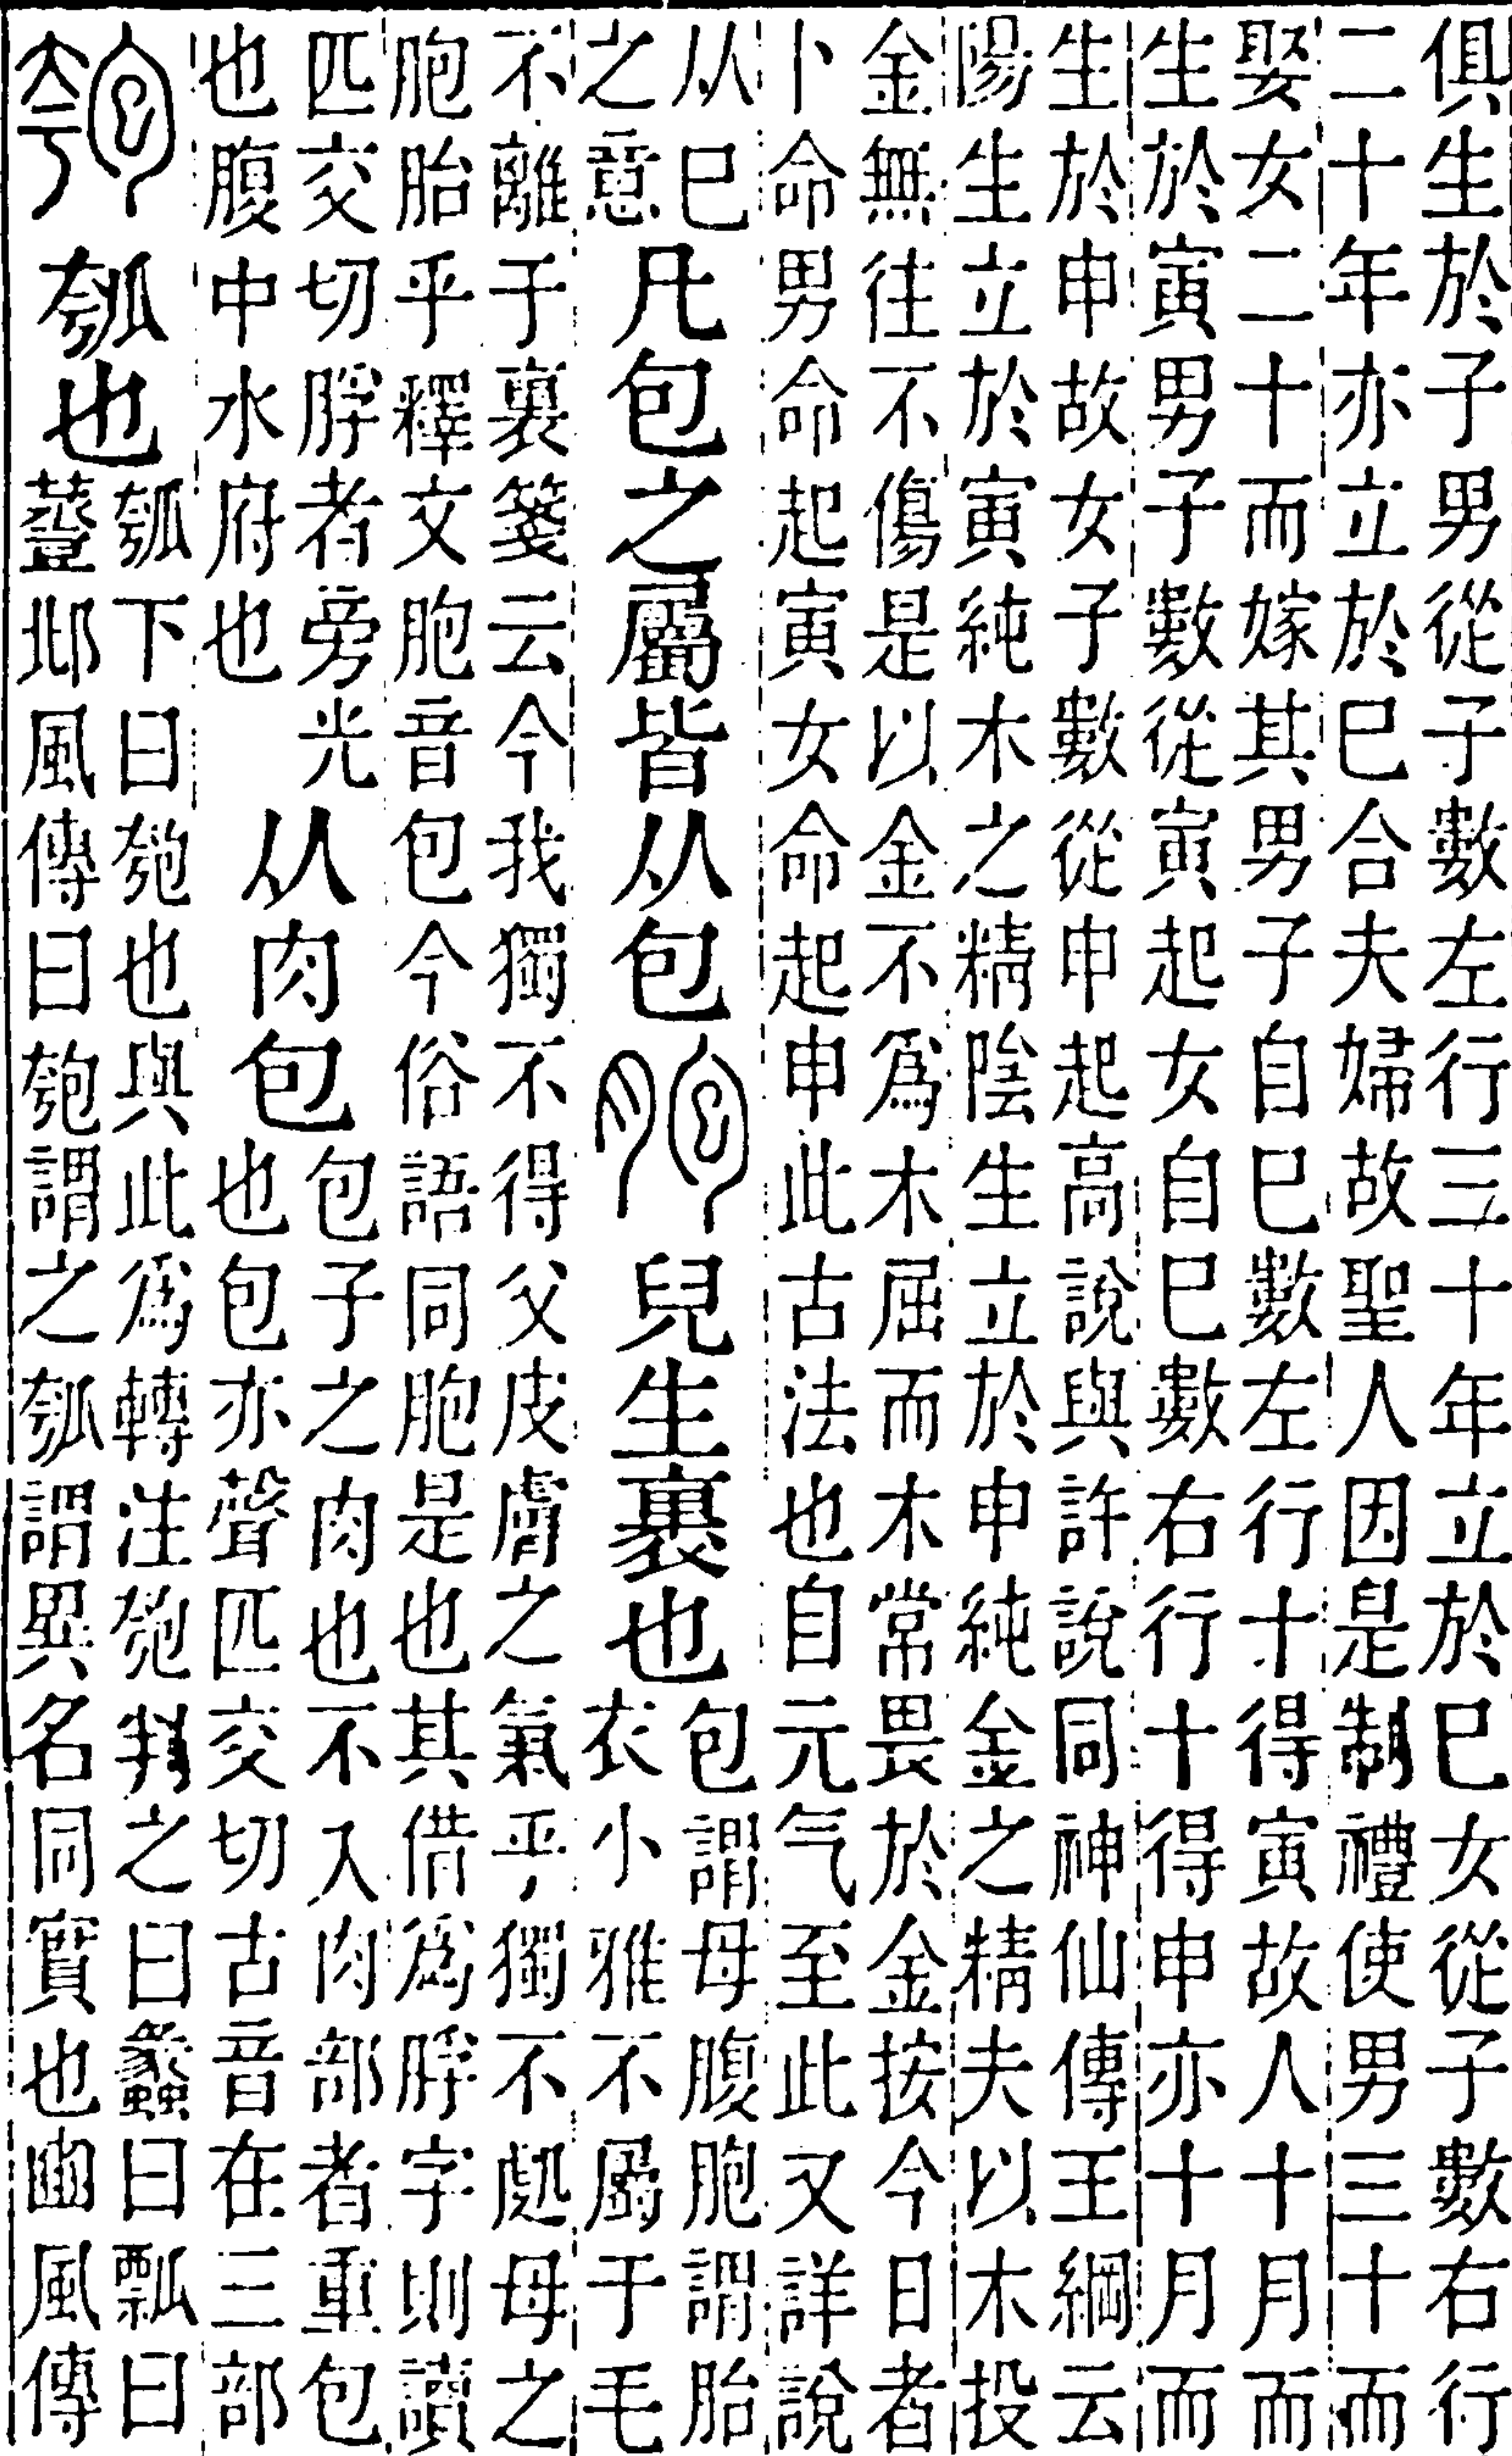 俱生於子男從子數左行三十年立於巳女從子數右行
二十年亦立於巳合夫婦故聖人因是制禮使男三十而
娶女二十而嫁其男子自巳數左行十得寅故人十月而
生於寅男子數從寅起女自巳數右行十得申亦十月而
生於申故女子數從申起高說與許說同神仙傳王綱云
陽生立於寅純木之精陰生立於申純金之精夫以木投
金無往不傷是以金不爲木屈而木常畏於金按今日者
卜命男命起寅女命起申此古法也自元气至此又詳說
从巳之意凡包之屬皆从包胞兒生裹也包謂母腹胞謂胎衣小雅不屬于毛
不離于裏箋云今我獨不得父皮膚之氣乎獨不処母之
胞胎乎釋文胞音包今俗語同胞是也其借爲脬字則讀
匹交切脬者旁光也腹中水府也从肉包包子之肉也不入肉部者重包也包亦聲匹交切古音在三部
匏瓠也瓠下曰匏也與此爲轉注匏判之曰蠡曰瓢曰𧯷邶風傳曰匏謂之瓠謂異名同實也豳風傳